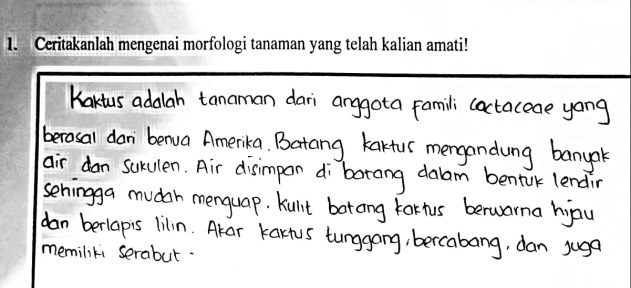 1. Ceritakanlah mengenai morfologi tanaman yang telah kalian amati!
Kaktus adalah tanaman dari anggota famili cactaceae yang
berasal dari benua Amerika. Batang kaktus mengandung banyak
air dan sukulen. Air disimpan di batang dalam bentuk lendir
sehingga mudah menguap. Kulit batang kaktus berwarna hijau
dan berlapis lilin. Akar kaktus tunggang, bercabang, dan juga
memiliki serabut.